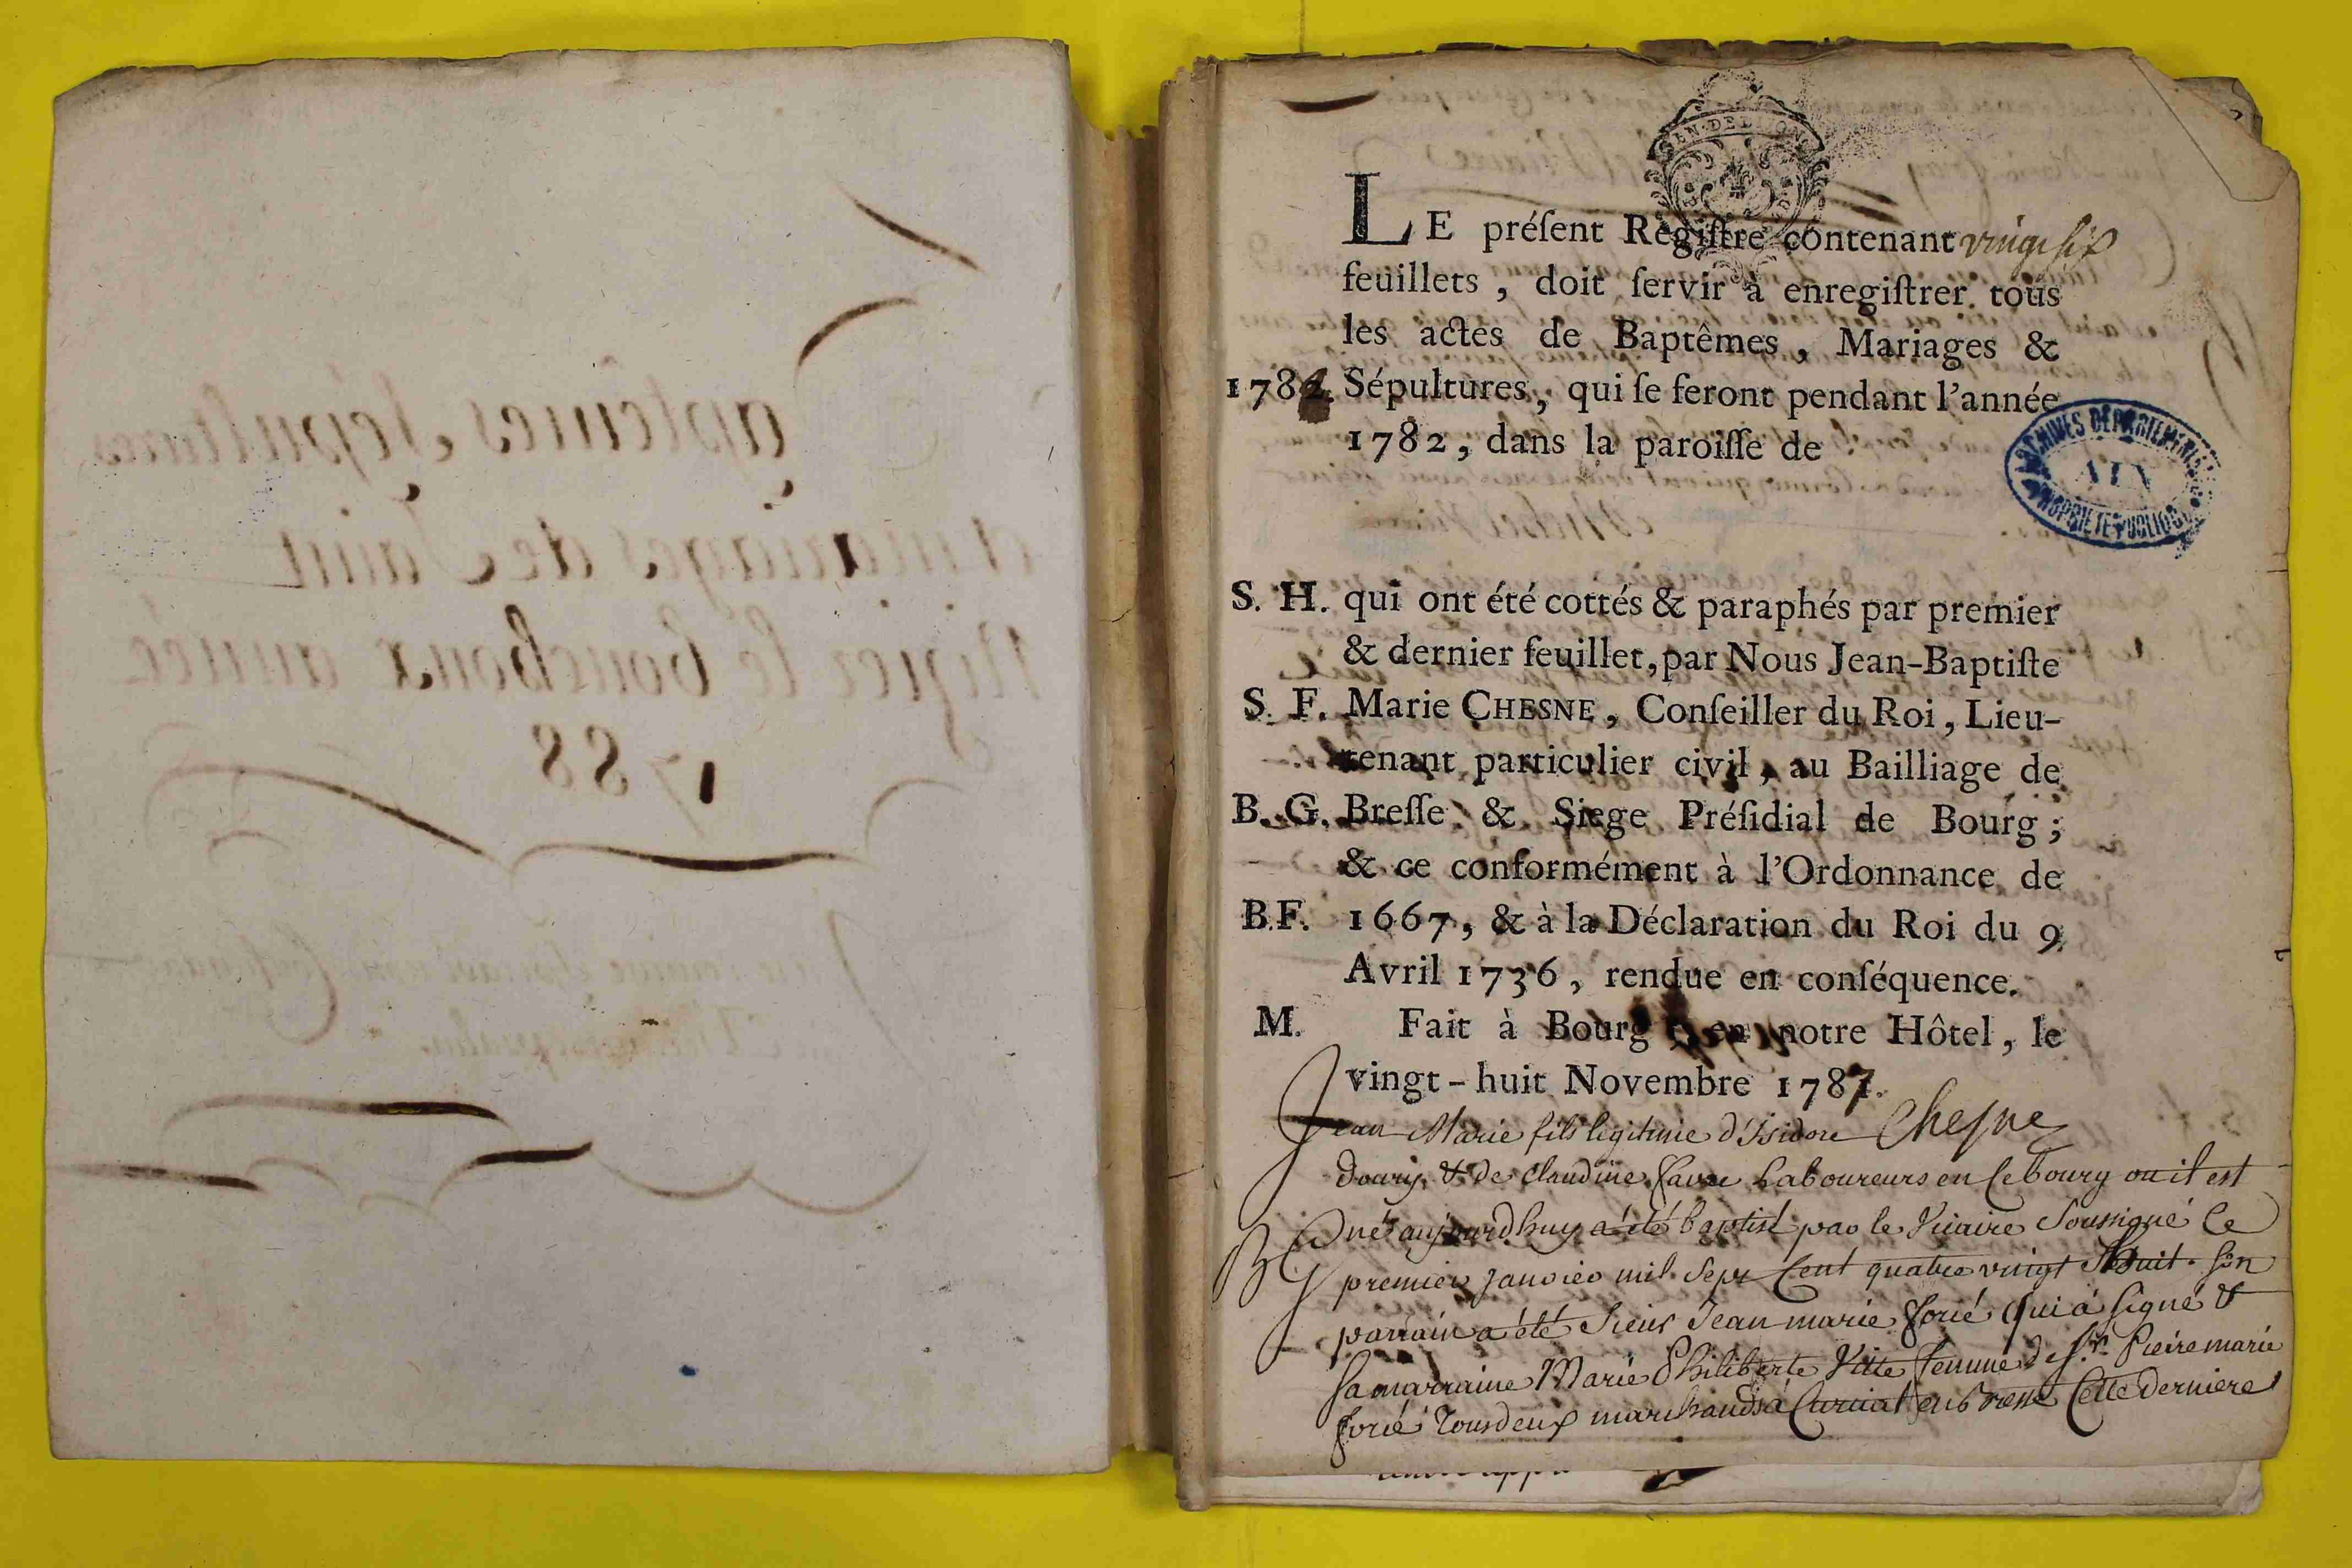 aptemes Sepultures
et mariages de Saint
Nizier le bouchoux année
1788
GEN. DE DIJON
LE préſent Regiſtre contenant vingt ſix
feuillets, doit ſervir à enregiſtrer tous
les actes de Baptêmes, Mariages &
1782. Sépultures, qui ſe feront pendant l'année
1782, dans la paroiſſe de
ARCHIVES DÉPARTEMENTALES
AIN
PROPRIÉTÉ PUBLIQUE
S. H. qui ont été cottés & paraphés par premier
& dernier feuillet, par Nous Jean-Baptiſte
S. F. Marie CHESNE, Conſeiller du Roi, Lieu-
tenant particulier civil, au Bailliage de
B. G. Breſſe & Siege Préſidial de Bourg;
& ce conformément à l'Ordonnance de
B.F. 1667, & à la Déclaration du Roi du 9
Avril 1736, rendue en conſéquence.
M. Fait à Bourg, en notre Hôtel, le
vingt-huit Novembre 1787.
Jean Marie fils legitime d'Isidore Chesne
& de Claudine favre Laboureurs en ce bourg ou il est
BG né aujourdhuy a été baptisé par le Vicaire Soussigné le
premier janvier mil Sept Cent quatre vingt huit. Son
parrain a été Sieur Jean marie forié qui a signé &
sa marraine Marie Philiberte Vitte femme de Sr. Pieire marie
forié tous deux marchands à Curciat en bresse Cette derniere